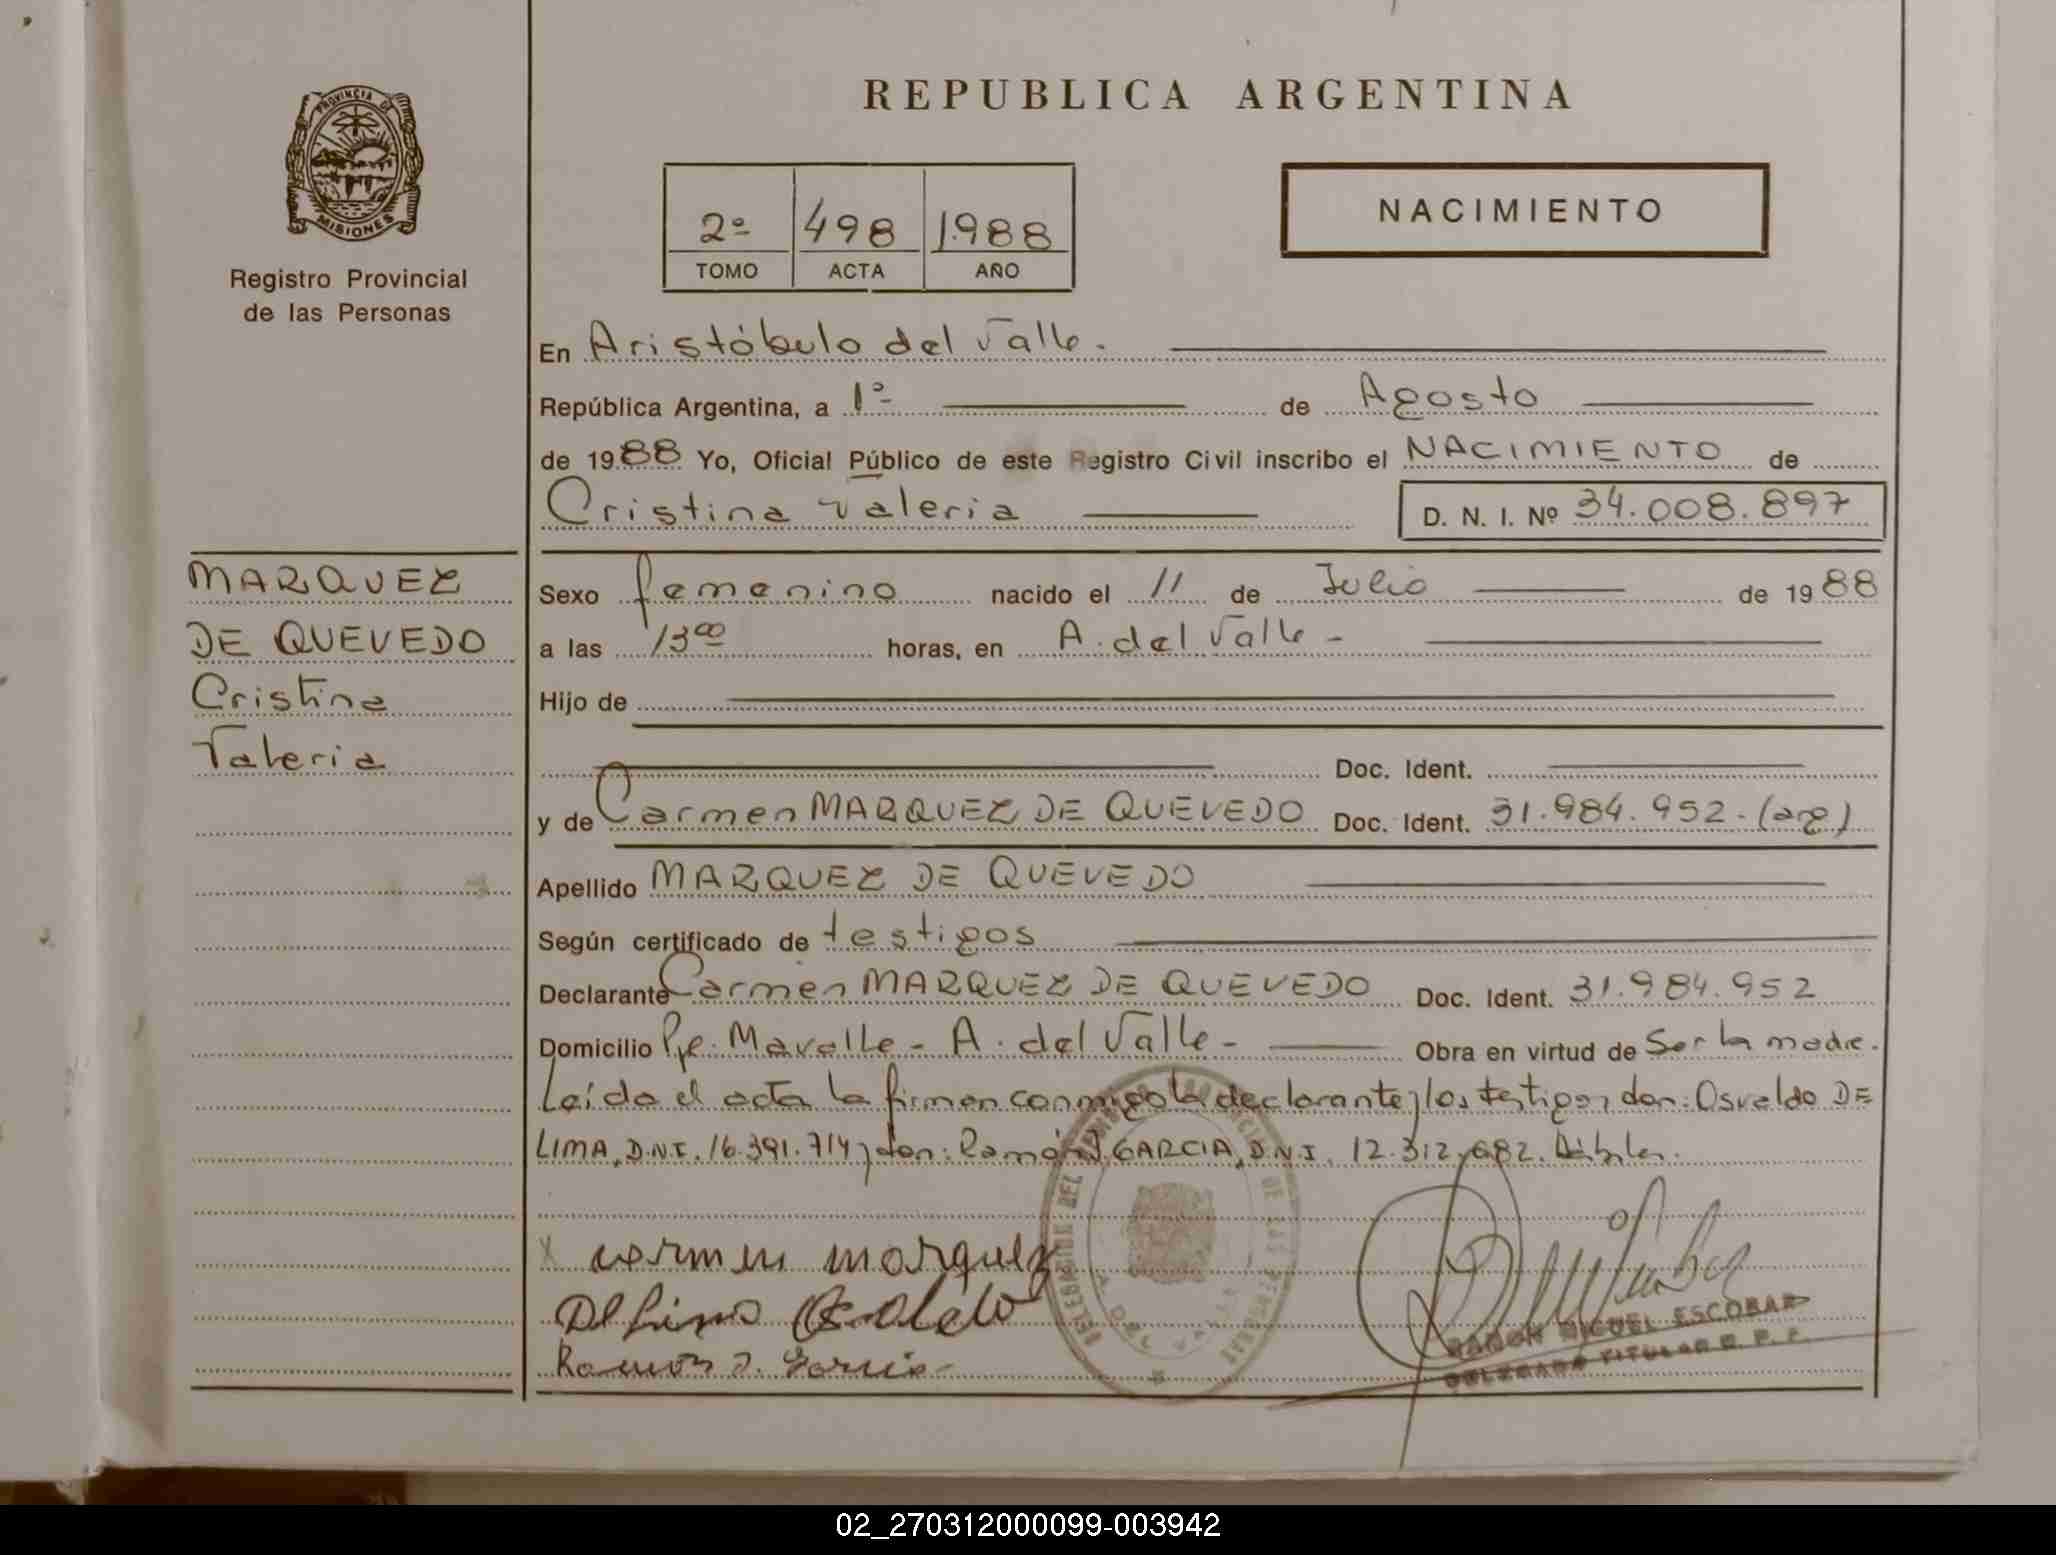 REPUBLICA ARGENTINA
PROVINCIA DE MISIONES
Registro Provincial
de las Personas
2º 498 1.988
TOMO ACTA AÑO
NACIMIENTO
En Aristóbulo del Valle.
República Argentina, a 1º de Agosto
de 1988 Yo, Oficial Público de este Registro Civil inscribo el NACIMIENTO de
Cristina Valeria D. N. I. Nº 34.008.897
MARQUEZ
DE QUEVEDO
Cristina
Valeria
Sexo femenino nacido el 11 de Julio de 1988
a las 13 00 horas, en A. del Valle -
Hijo de
Doc. Ident.
y de Carmen MARQUEZ DE QUEVEDO Doc. Ident. 31.984.952.(arg)
Apellido MARQUEZ DE QUEVEDO
Según certificado de testigos
Declarante Carmen MARQUEZ DE QUEVEDO Doc. Ident. 31.984.952
Domicilio Pje. Mavalle - A. del Valle - Obra en virtud de Ser la madre.
Leída el acta la firman conmigo la declarante y los testigos don: Osvaldo DE
LIMA, D.N.I. 16.391.714 y don: Ramón J. GARCIA, D.N.I. 12.312.682. Hábiles.
x carmen marquez
De Lima Osvaldo
Ramón J. Garcia
A. DEL VALLE
RAMON MIGUEL ESCOBAR
DELEGADO TITULAR R. P. P.
02_270312000099-003942